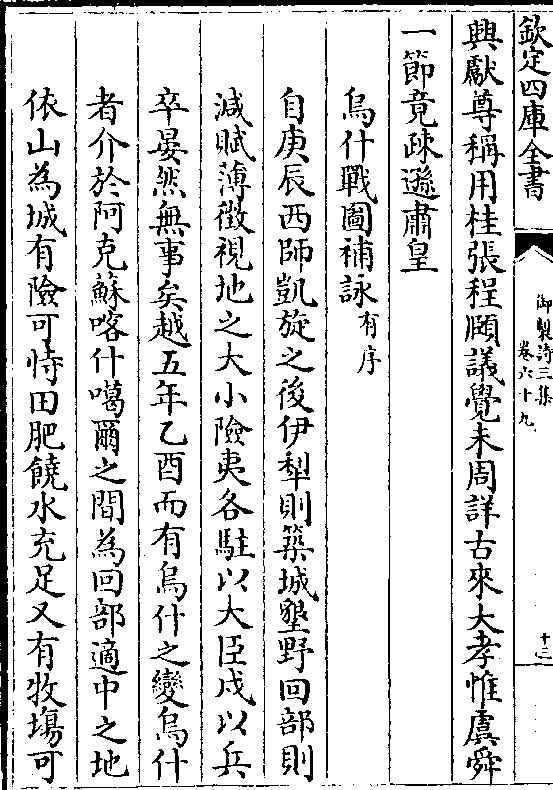 欽定四庫全書
御製詩三集
卷六十九
十三
興獻尊稱用桂張程頤議覺未周詳古來大孝惟虞舜
一節竟疎遜肅皇
烏什戰圖補詠有序
自庚辰西師凱旋之後伊犁則築城墾野回部則
減賦薄徵視地之大小險夷各駐以大臣戍以兵
卒晏然無事矣越五年乙酉而有烏什之變烏什
者介於阿克蘇喀什噶爾之間為回部適中之地
依山為城有險可恃田肥饒水充足又有牧塲可